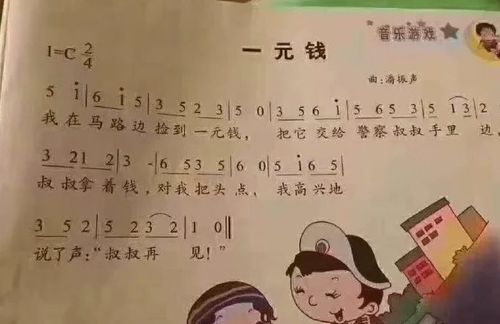 音乐游戏
1=C 2/4
一元钱
曲:潘振声
5 i|6 i 5|3 5 2 3|5 0|3 5 6 i|5 6 5 3|5 1 3|2
我在马路边捡到一元钱，把它交给警察叔叔手里边，
3 21 2|3 -|6 53 5|6 0|5 i 6 5|
叔叔拿着钱，对我把头点，我高兴地
3 5 2|5 2 3 2|1 0‖
说了声:“叔叔再见！”